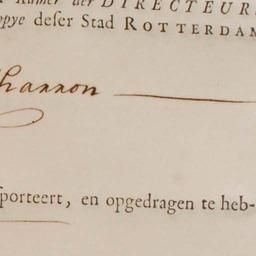 Kamer der DIRECTEUR
opye deser Stad ROTTERDAM
hannon
porteert, en opgedragen te heb-